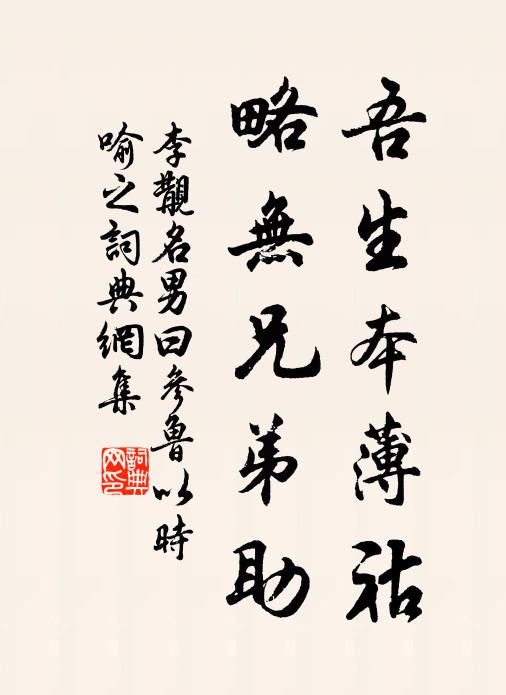 吾生本薄祜
略無兄弟助
李觀名男曰參魯以時
喻之詞典網集
詞典
网印